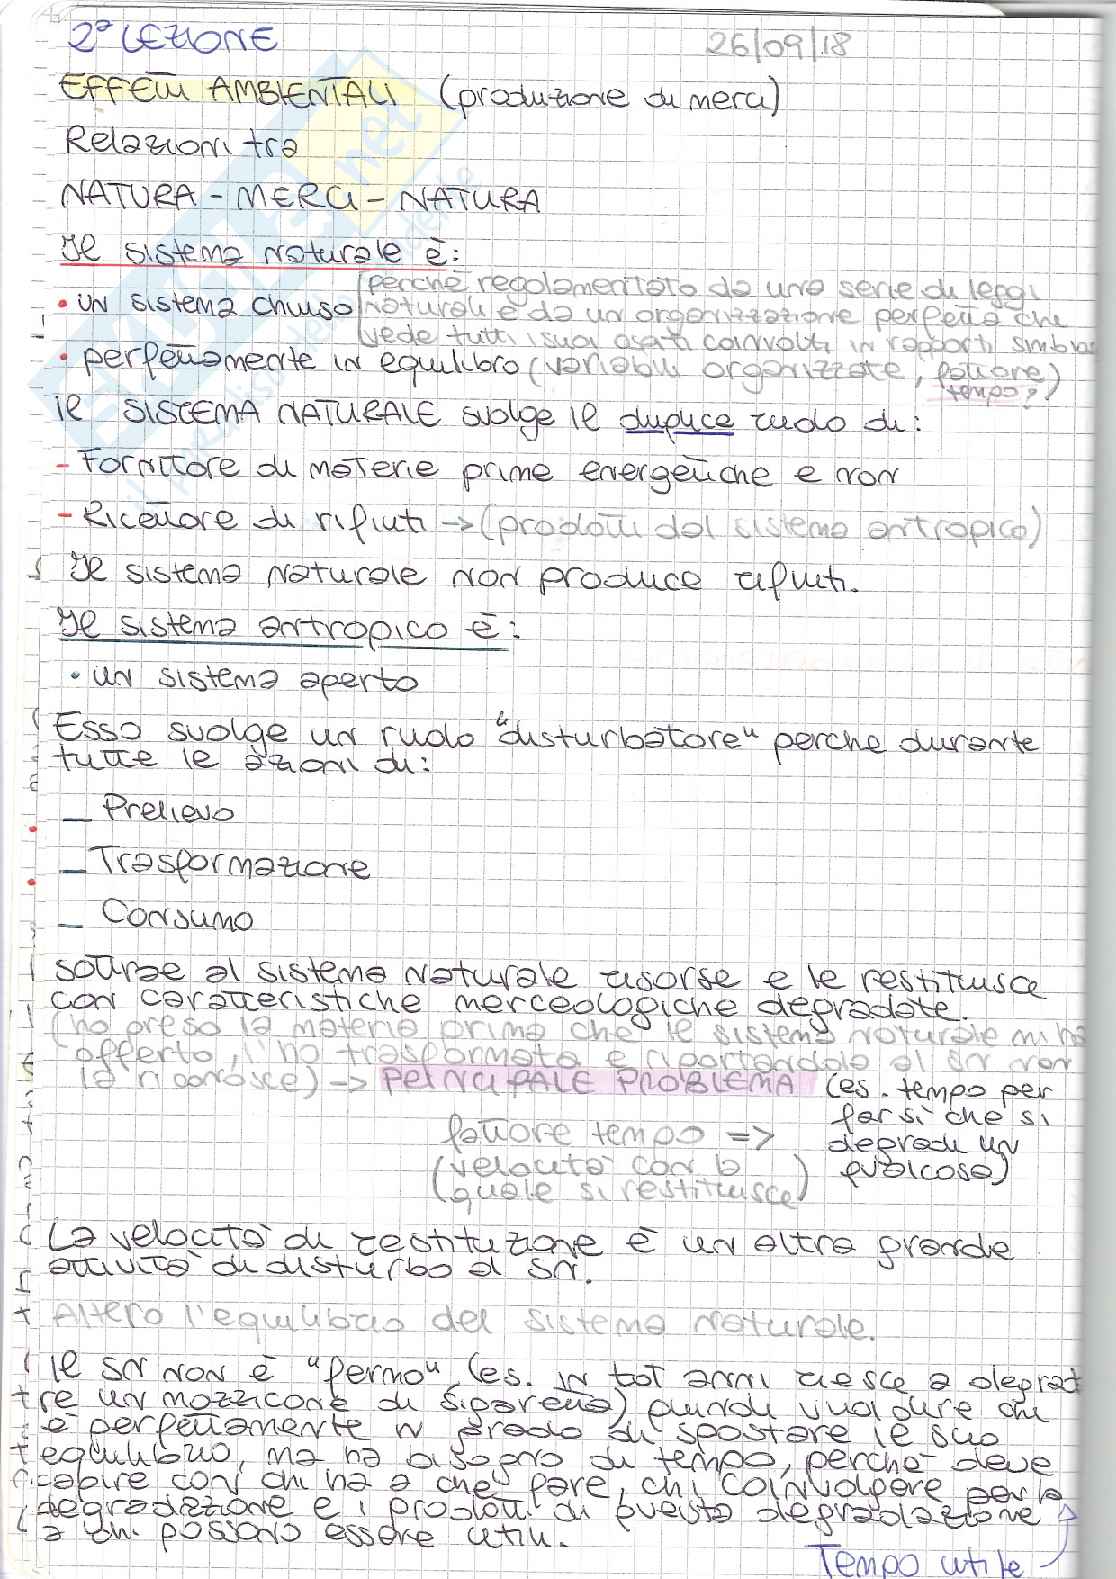 2ª LEZIONE 26/09/18
EFFETTI AMBIENTALI (produzione di merci)
Relazioni tra
NATURA - MERCI - NATURA
Il sistema naturale è:
• un sistema chiuso (perché regolamentato da una serie di leggi
naturali e da un organizzazione perfetta che
vede tutti i suoi convolti in rapporti simbio
• perfettamente in equilibro (variabili organizzate, fattore)
tempo?
il SISTEMA NATURALE svolge il duplice ruolo di:
- Fornitore di materie prime energetiche e non
- Ricettore di rifiuti → (prodotti dal sistema antropico)
Il sistema naturale non produce rifiuti.
Il sistema antropico è:
• un sistema aperto
Esso svolge un ruolo "disturbatore" perche durante
tutte le azioni di:
_ Prelievo
_ Trasformazione
_ Consumo
sottrae al sistema naturale risorse e le restituisce
con caratteristiche merceologiche degradate.
(ho preso la materia prima che il sistema naturale mi ha
offerto, l'ho trasformata e riportandola al SN non
la riconosce) → PRINCIPALE PROBLEMA (es. tempo per
far sì che si
fattore tempo => degradi un
(velocità con la qualcosa)
quale si restituisce)
La velocità di restituzione è un altra grande
attività di disturbo al SN.
Altero l'equilibrio del sistema naturale.
Il SN non è "fermo", (es. in tot anni riesce a degrada
re un mozzicone di sigaretta) quindi vuol dire che
è perfettamente in grado di spostare il suo
equilibrio, ma ha bisogno di tempo, perché deve
capire con chi ha a che fare, chi coinvolgere per la
degradazione e i prodotti di questa degradazione
a chi possono essere utili.
Tempo utile